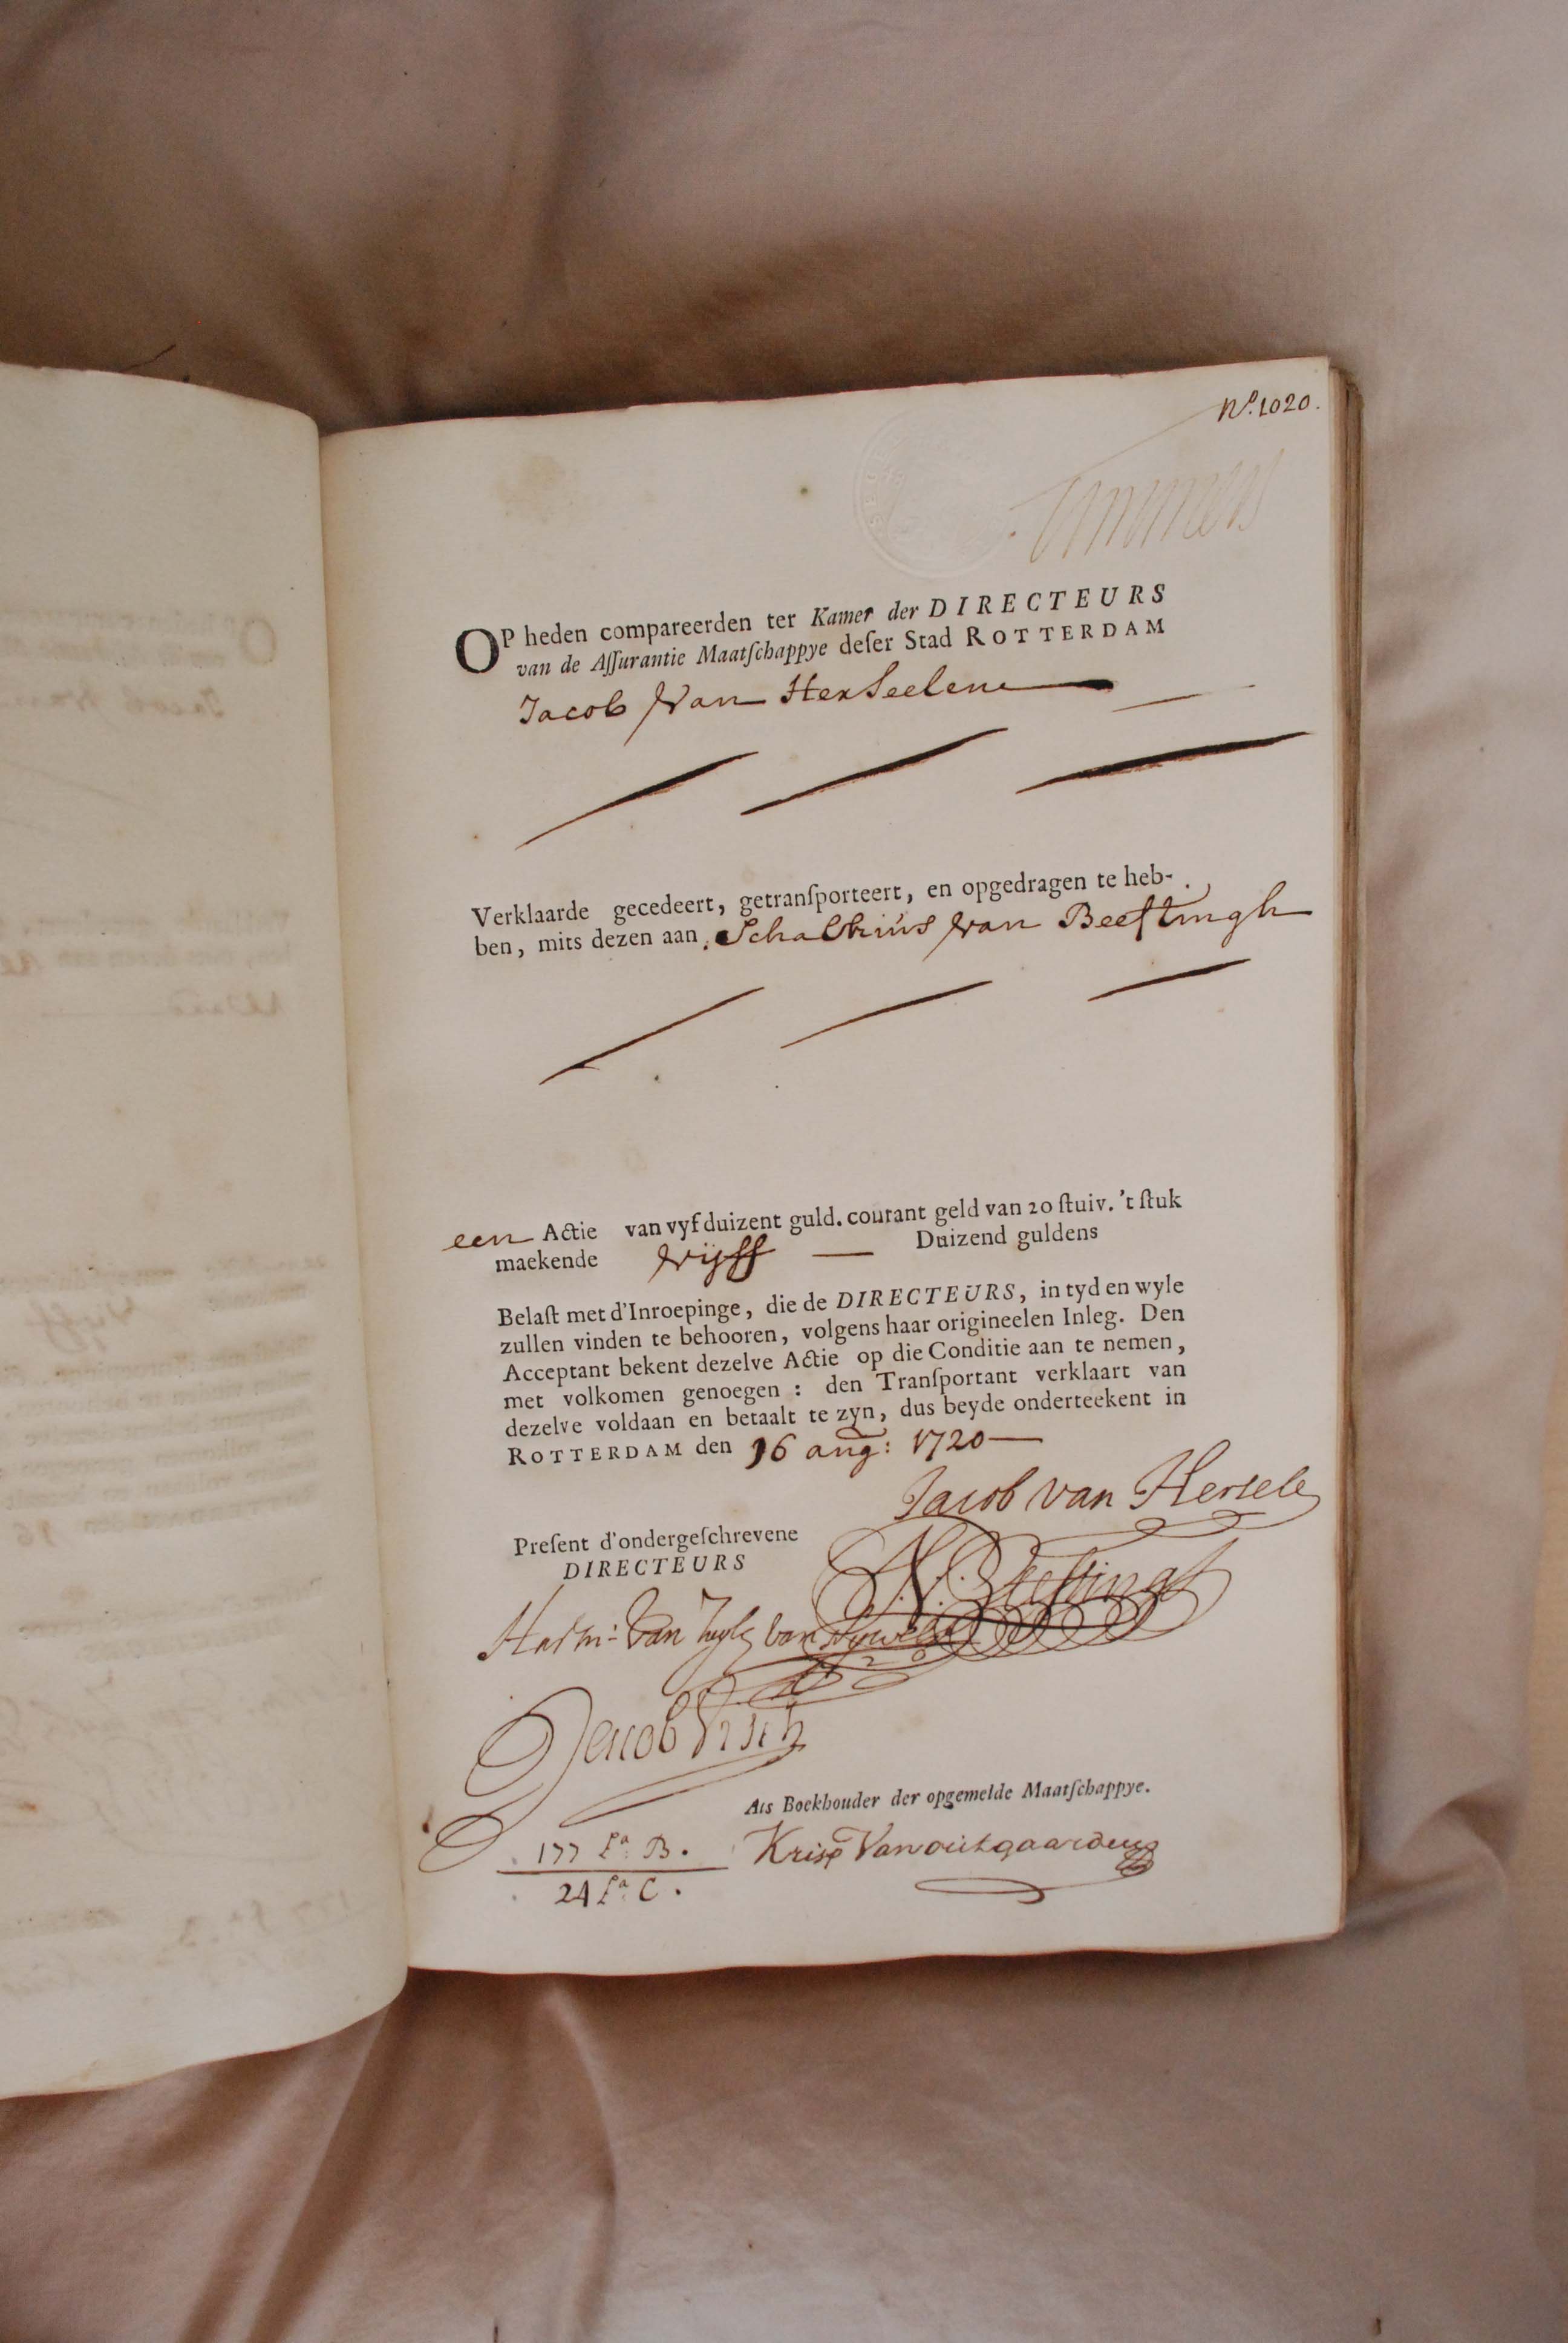 No. 1020.
OP heden compareerden ter Kamer der DIRECTEURS
van de Aſſurantie Maatſchappye deſer Stad ROTTERDAM
Jacob Van Herseelen
Verklaarde gecedeert, getranſporteert, en opgedragen te heb-
ben, mits dezen aan van Beeftingh
een Actie van vyf duizent guld. courant geld van 20 ſtuiv. 't ſtuk
maekende vijff Duizend guldens
Belaſt met d'Inroepinge, die de DIRECTEURS, in tyd en wyle
zullen vinden te behooren, volgens haar origineelen Inleg. Den
Acceptant bekent dezelve Actie op die Conditie aan te nemen,
met volkomen genoegen : den Tranſportant verklaart van
dezelve voldaan en betaalt te zyn, dus beyde onderteekent in
ROTTERDAM den 16 aug: 1720
Jacob van Hersele
Preſent d'ondergeſchrevene
DIRECTEURS
Van Zuyle van
Jacob Visch
Als Boekhouder der opgemelde Maatſchappye.
177 Lª B.
Van outgaarden
24 Lª C.